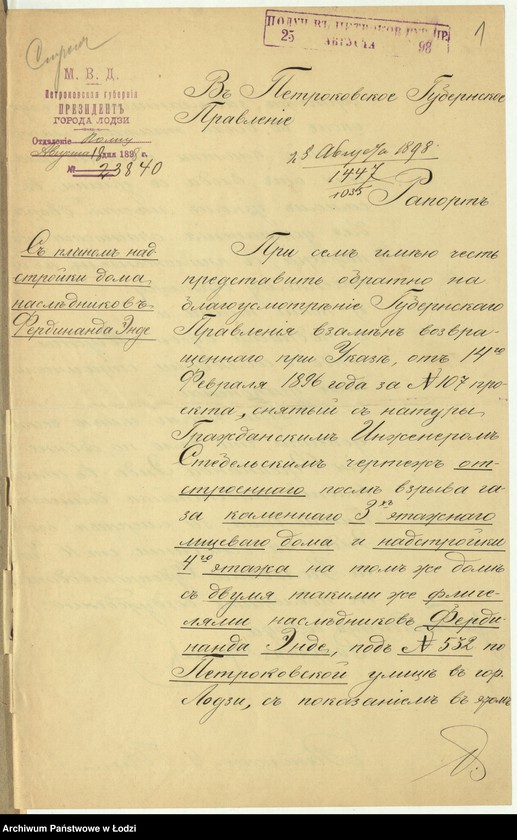 1
ПОЛУЧ. ВЪ ПЕТРОКОВ. ГУБ. ПР.
25 АВГУСТА 98
Строит
М. В. Д.
Петроковская губернія
ПРЕЗИДЕНТЪ
ГОРОДА ЛОДЗИ
Отдѣленіе Полиц
Августа 19 дня 1898 г.
№ 23840
Въ Петроковское Губернское
Правленіе
25 Августа 1898
1447
1035
Рапортъ
Съ планомъ над
стройки дома
наслѣдниковъ
Фердинанда Энде
При семъ имѣю честь
представить обратно на
благоусмотрѣніе Губернскаго
Правленія взамѣнъ возвра-
щеннаго при Указѣ, отъ 14го
Февраля 1896 года за № 107 про-
екта, снятый съ натуры
Гражданскимъ Инженеромъ
Стебельскимъ чертежъ от-
строеннаго послѣ взрыва га-
за каменнаго 3хъ этажнаго
лицеваго дома и надстройки
4го этажа на томъ же домѣ
съ двумя такими же флиге-
лями наслѣдниковъ Ферди-
нанда Энде, подъ № 532 по
Петроковской улицѣ въ гор.
Лодзи, съ показаніемъ въ томъ
Archiwum Państwowe w Łodzi